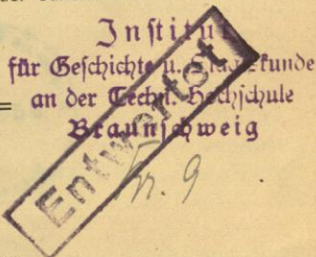 Institut
für Geschichte u. Staatskunde
an der Techn. Hochschule
Braunschweig
Entwertet
Nr. 9